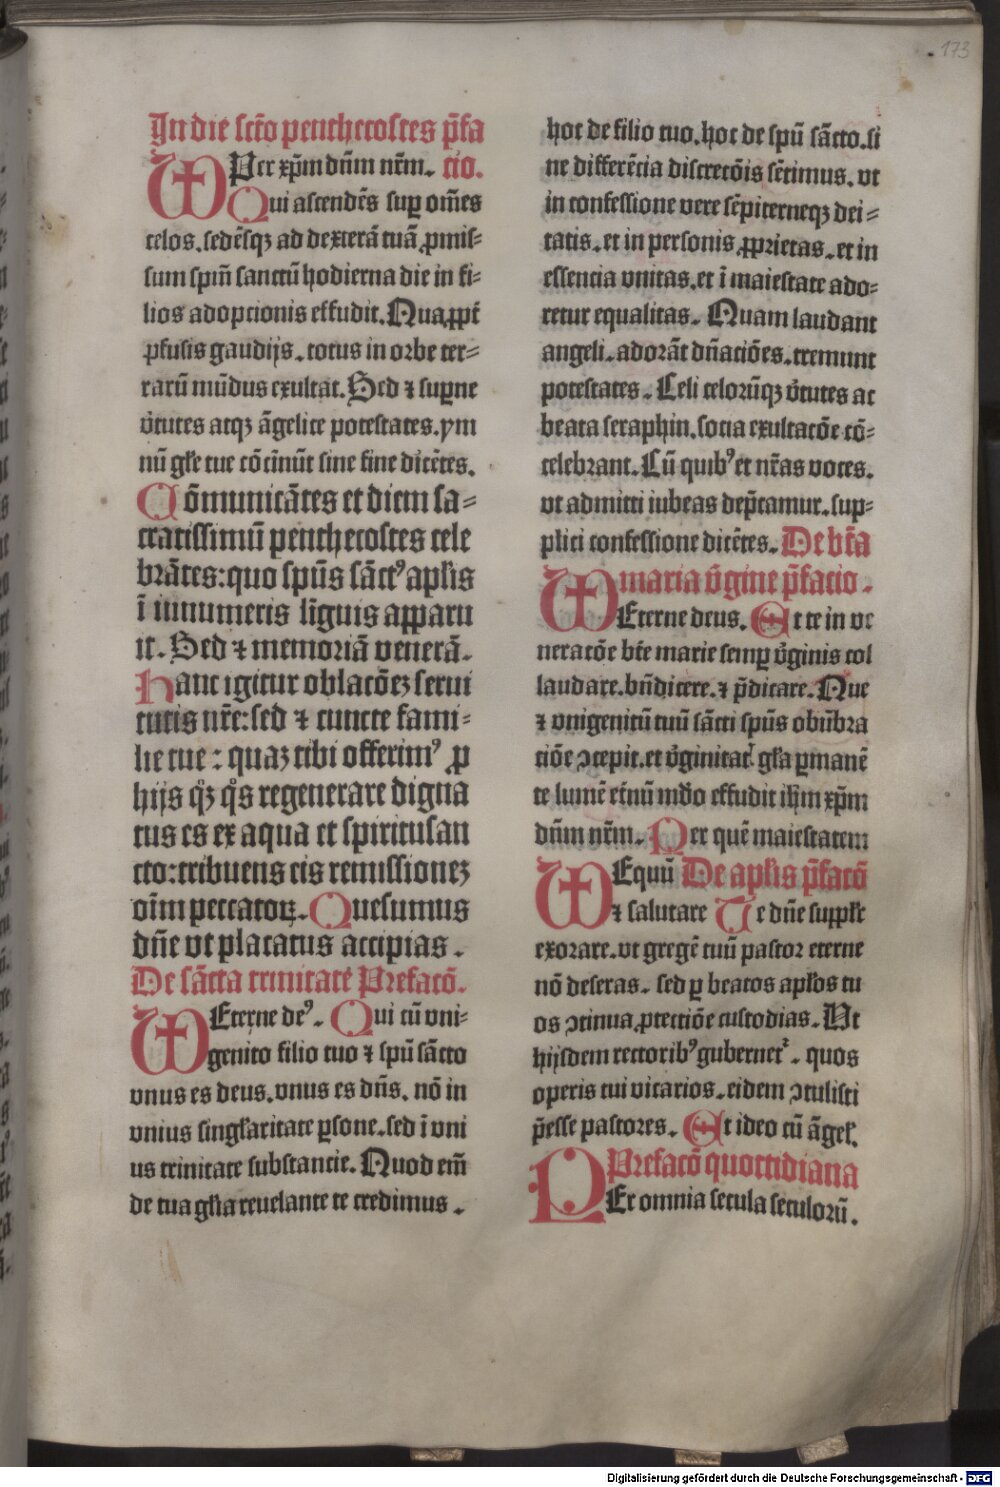 173
In die sctō penthecostes p̄fa
Per xp̄m dn̄m nr̄m. cio.
Qui ascendēs sup om̄es
celos. sedēsqz ad dexterā tuā ꝓmis⸗
sum spm̄ sanctū hodierna die in fi⸗
lios adopcionis effudit. Quaꝓpt̄
ꝓfusis gaudijs. totus in orbe ter⸗
rarū mūdus exultat. Sed ⁊ suꝑne
v̄tutes atqz āgelice potestates. ym
nū gl̄e tue cōcinūt sine fine dicētes.
Cōmunicātes et diem sa⸗
cratissimū penthecostes cele
brātes: quo spūs sāctꝰ apl̄is
ī innumeris līguis apparu
it. Sed ⁊ memoriā venerā.
Hanc igitur oblacōez serui
tutis nr̄e: sed ⁊ cuncte fami⸗
lie tue: quaz tibi offerimꝰ ꝓ
hijs qͦz qͦs regenerare digna
tus es ex aqua et spiritusan
cto: tribuens eis remissionez
oīm peccatoꝝ. Quesumus
dn̄e vt placatus accipias.
De sācta trinitate Prefacō.
Eterne deꝰ. Qui cū vni⸗
genito filio tuo ⁊ spū sācto
vnus es deus. vnus es dn̄s. nō in
vnius singl̄aritate ꝑsone. sed ī vni
us trinitate substancie. Quod em̄
de tua gl̄ia reuelante te credimus.
hoc de filio tuo. hoc de spū sācto. si
ne differēcia discrecōis sētimus. vt
in confessione vere sēpiterneqz dei⸗
tatis. et in personis ꝓprietas. et in
essencia vnitas. et ī maiestate ado⸗
retur equalitas. Quam laudant
angeli. adorāt dn̄aciōes. tremunt
potestates. Celi celorūqz v̄tutes ac
beata seraphin. socia exultacōe cō⸗
celebrant. Cū quibꝰ et nr̄as voces.
vt admitti iubeas dep̄camur. sup⸗
plici confessione dicētes. De bt̄a
maria v̄gine p̄facio.
Eterne deus. Et te in ve
neracōe bt̄e marie semꝑ v̄ginis col
laudare. bn̄dicere. ⁊ p̄dicare. Que
⁊ vnigenitū tuū sācti spūs obūbra
ciōe ↄcepit. et v̄ginitatꝭ gl̄a ꝑmanē
te lumē et̄nū mūdo effudit ih̄m xp̄m
dn̄m nr̄m. Per quē maiestatem
Equū De apl̄is p̄facō
⁊ salutare Te dn̄e supplr̄
exorare. vt gregē tuū pastor eterne
nō deseras. sed ꝑ beatos apl̄os tu
os ↄtinua ꝓtectiōe custodias. Vt
hijsdem rectoribꝰ gubernet͛. quos
operis tui vicarios. eidem ↄtulisti
p̄esse pastores. Et ideo cū āgel̄.
Prefacō quottidiana
PEr omnia secula seculorū.
Digitalisierung gefördert durch die Deutsche Forschungsgemeinschaft - DFG